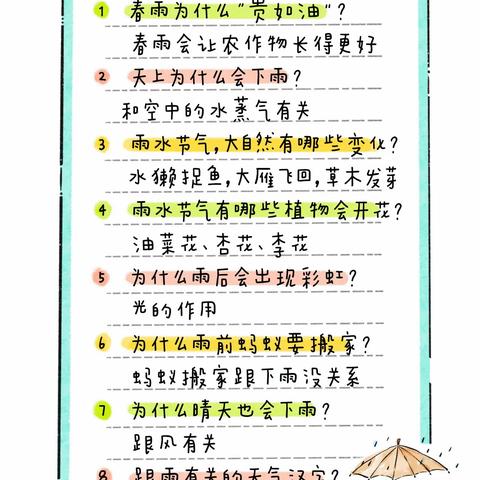 1 春雨为什么"贵如油"?
春雨会让农作物长得更好
2 天上为什么会下雨?
和空中的水蒸气有关
3 雨水节气,大自然有哪些变化?
水獭捉鱼,大雁飞回,草木发芽
4 雨水节气有哪些植物会开花?
油菜花、杏花、李花
5 为什么雨后会出现彩虹?
光的作用
6 为什么雨前蚂蚁要搬家?
蚂蚁搬家跟下雨没关系
7 为什么晴天也会下雨?
跟风有关
8 跟雨有关的天气汉字?